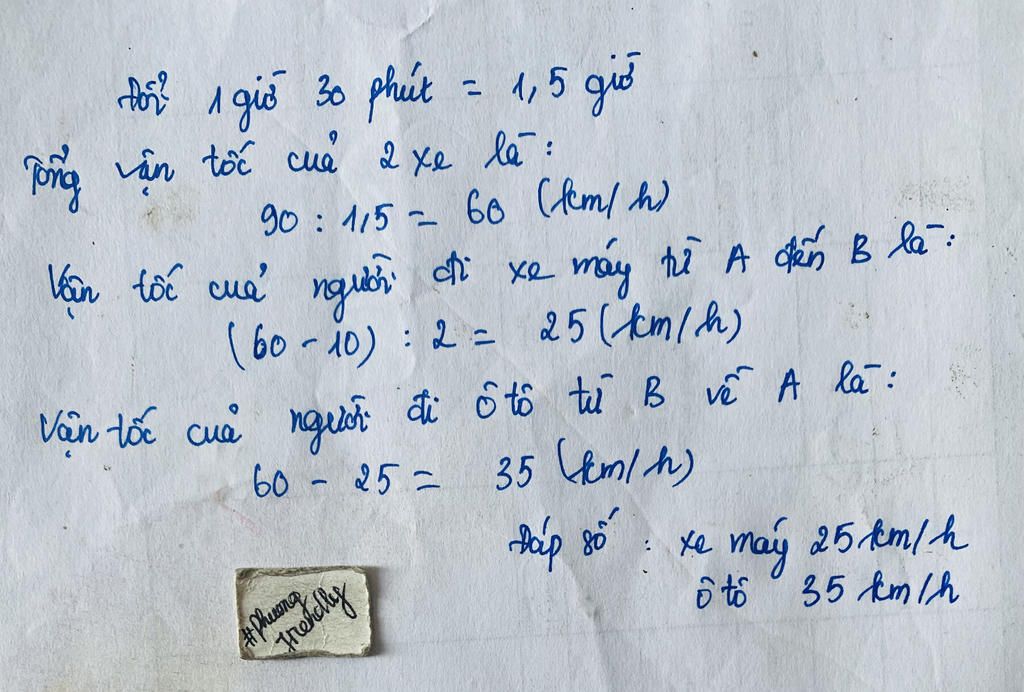 Đổi 1 giờ 30 phút = 1,5 giờ
Tổng vận tốc của 2 xe là:
90 : 1,5 = 60 (km/h)
Vận tốc của người đi xe máy từ A đến B là:
(60 - 10) : 2 = 25 (km/h)
Vận tốc của người đi ô tô từ B về A là:
60 - 25 = 35 (km/h)
Đáp số : xe máy 25 km/h
ô tô 35 km/h
#phuong